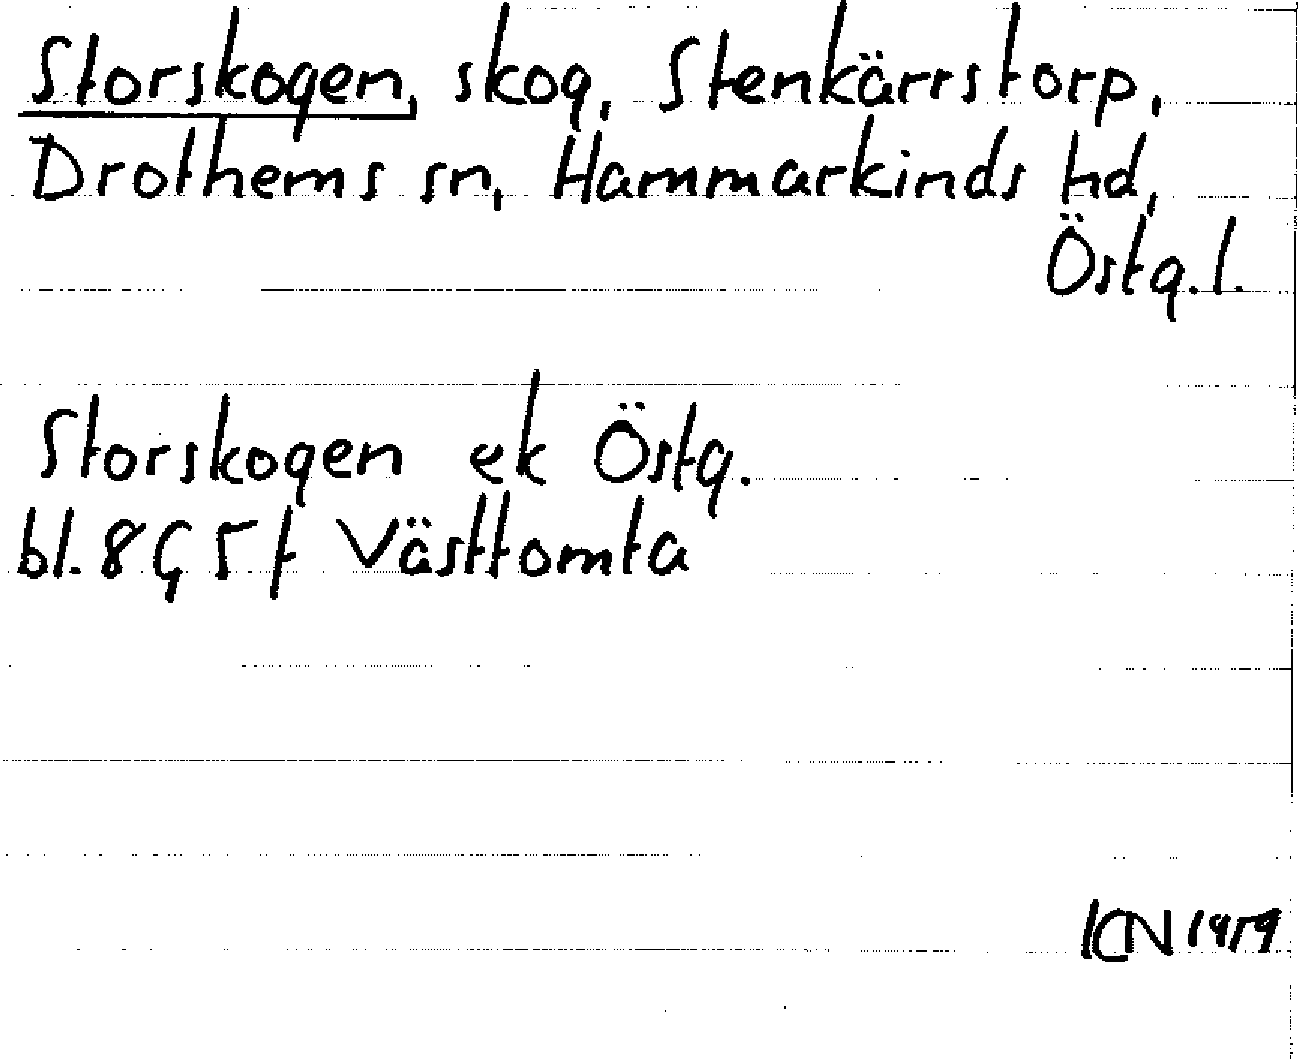 Storskogen, skog, Stenkärrstorp,
Drothems sn, Hammarkinds hd,
Östg.l.
Storskogen ek Östg.
bl. 8G 5f Västtomta
ICN 1959